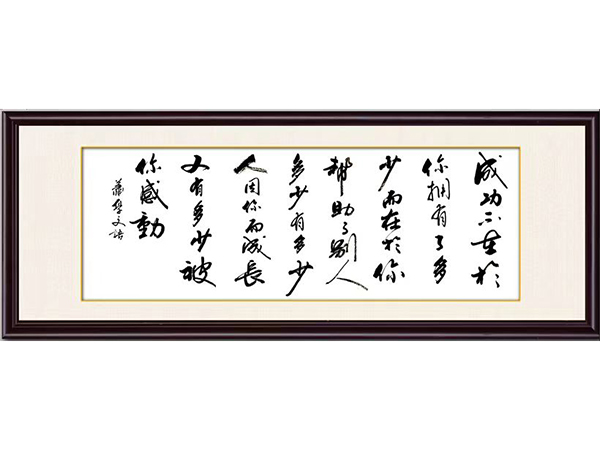 成功不在於
你拥有了多
少而在於你
帮助了别人
多少有多少
人因你而成長
又有多少被
你感動